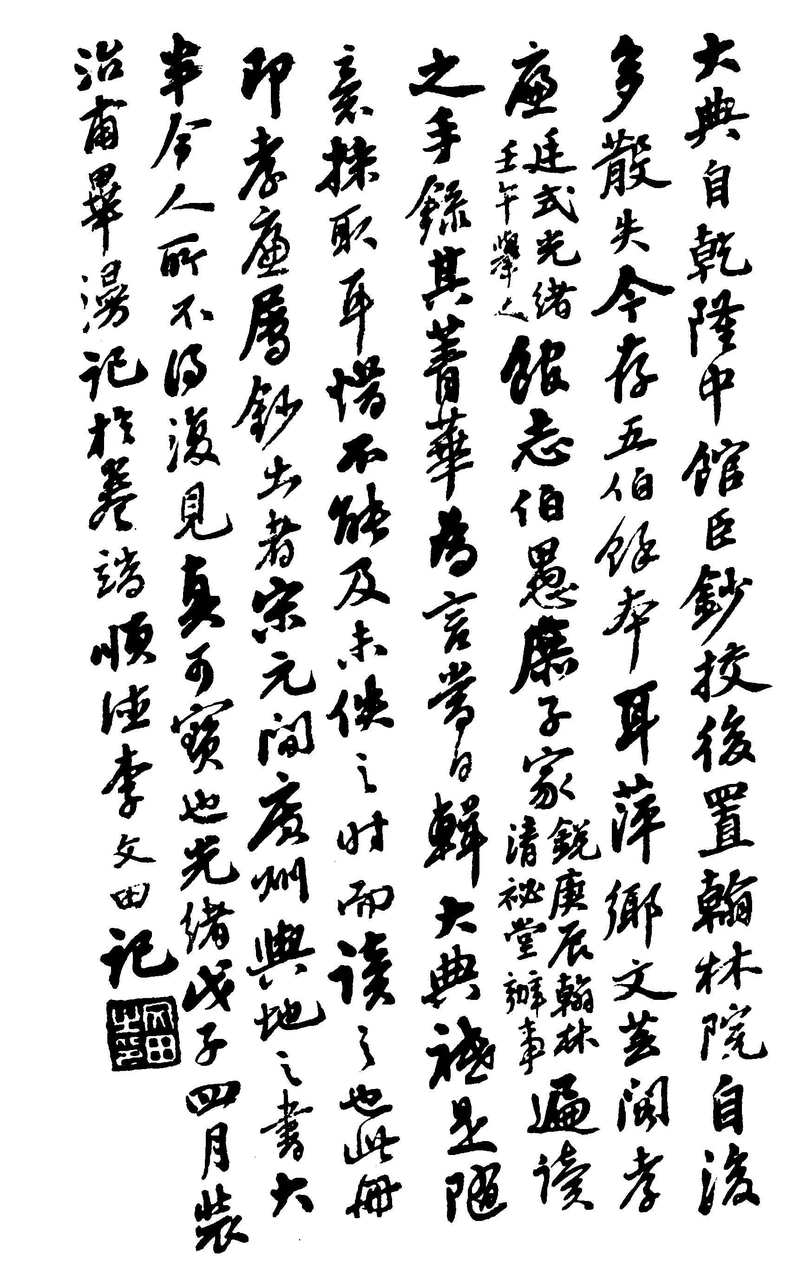 大典自乾隆中館臣鈔挍後置翰林院自後
多散失今存五伯餘本耳萍鄉文芸閣孝
廉廷式光緒壬午舉人館志伯愚詹子家銳庚辰翰林清祕堂辦事遍读
之手錄其菁華為言當日輯大典祇是隨
意採取耳惜不能及未佚之时而读之也此冊
即孝廉屬鈔出者宋元間廣州輿地之書大
半今人所不得復見真可寶也光緒戊子四月裝
治甫畢漫記於卷端順德李文田記
文田之印